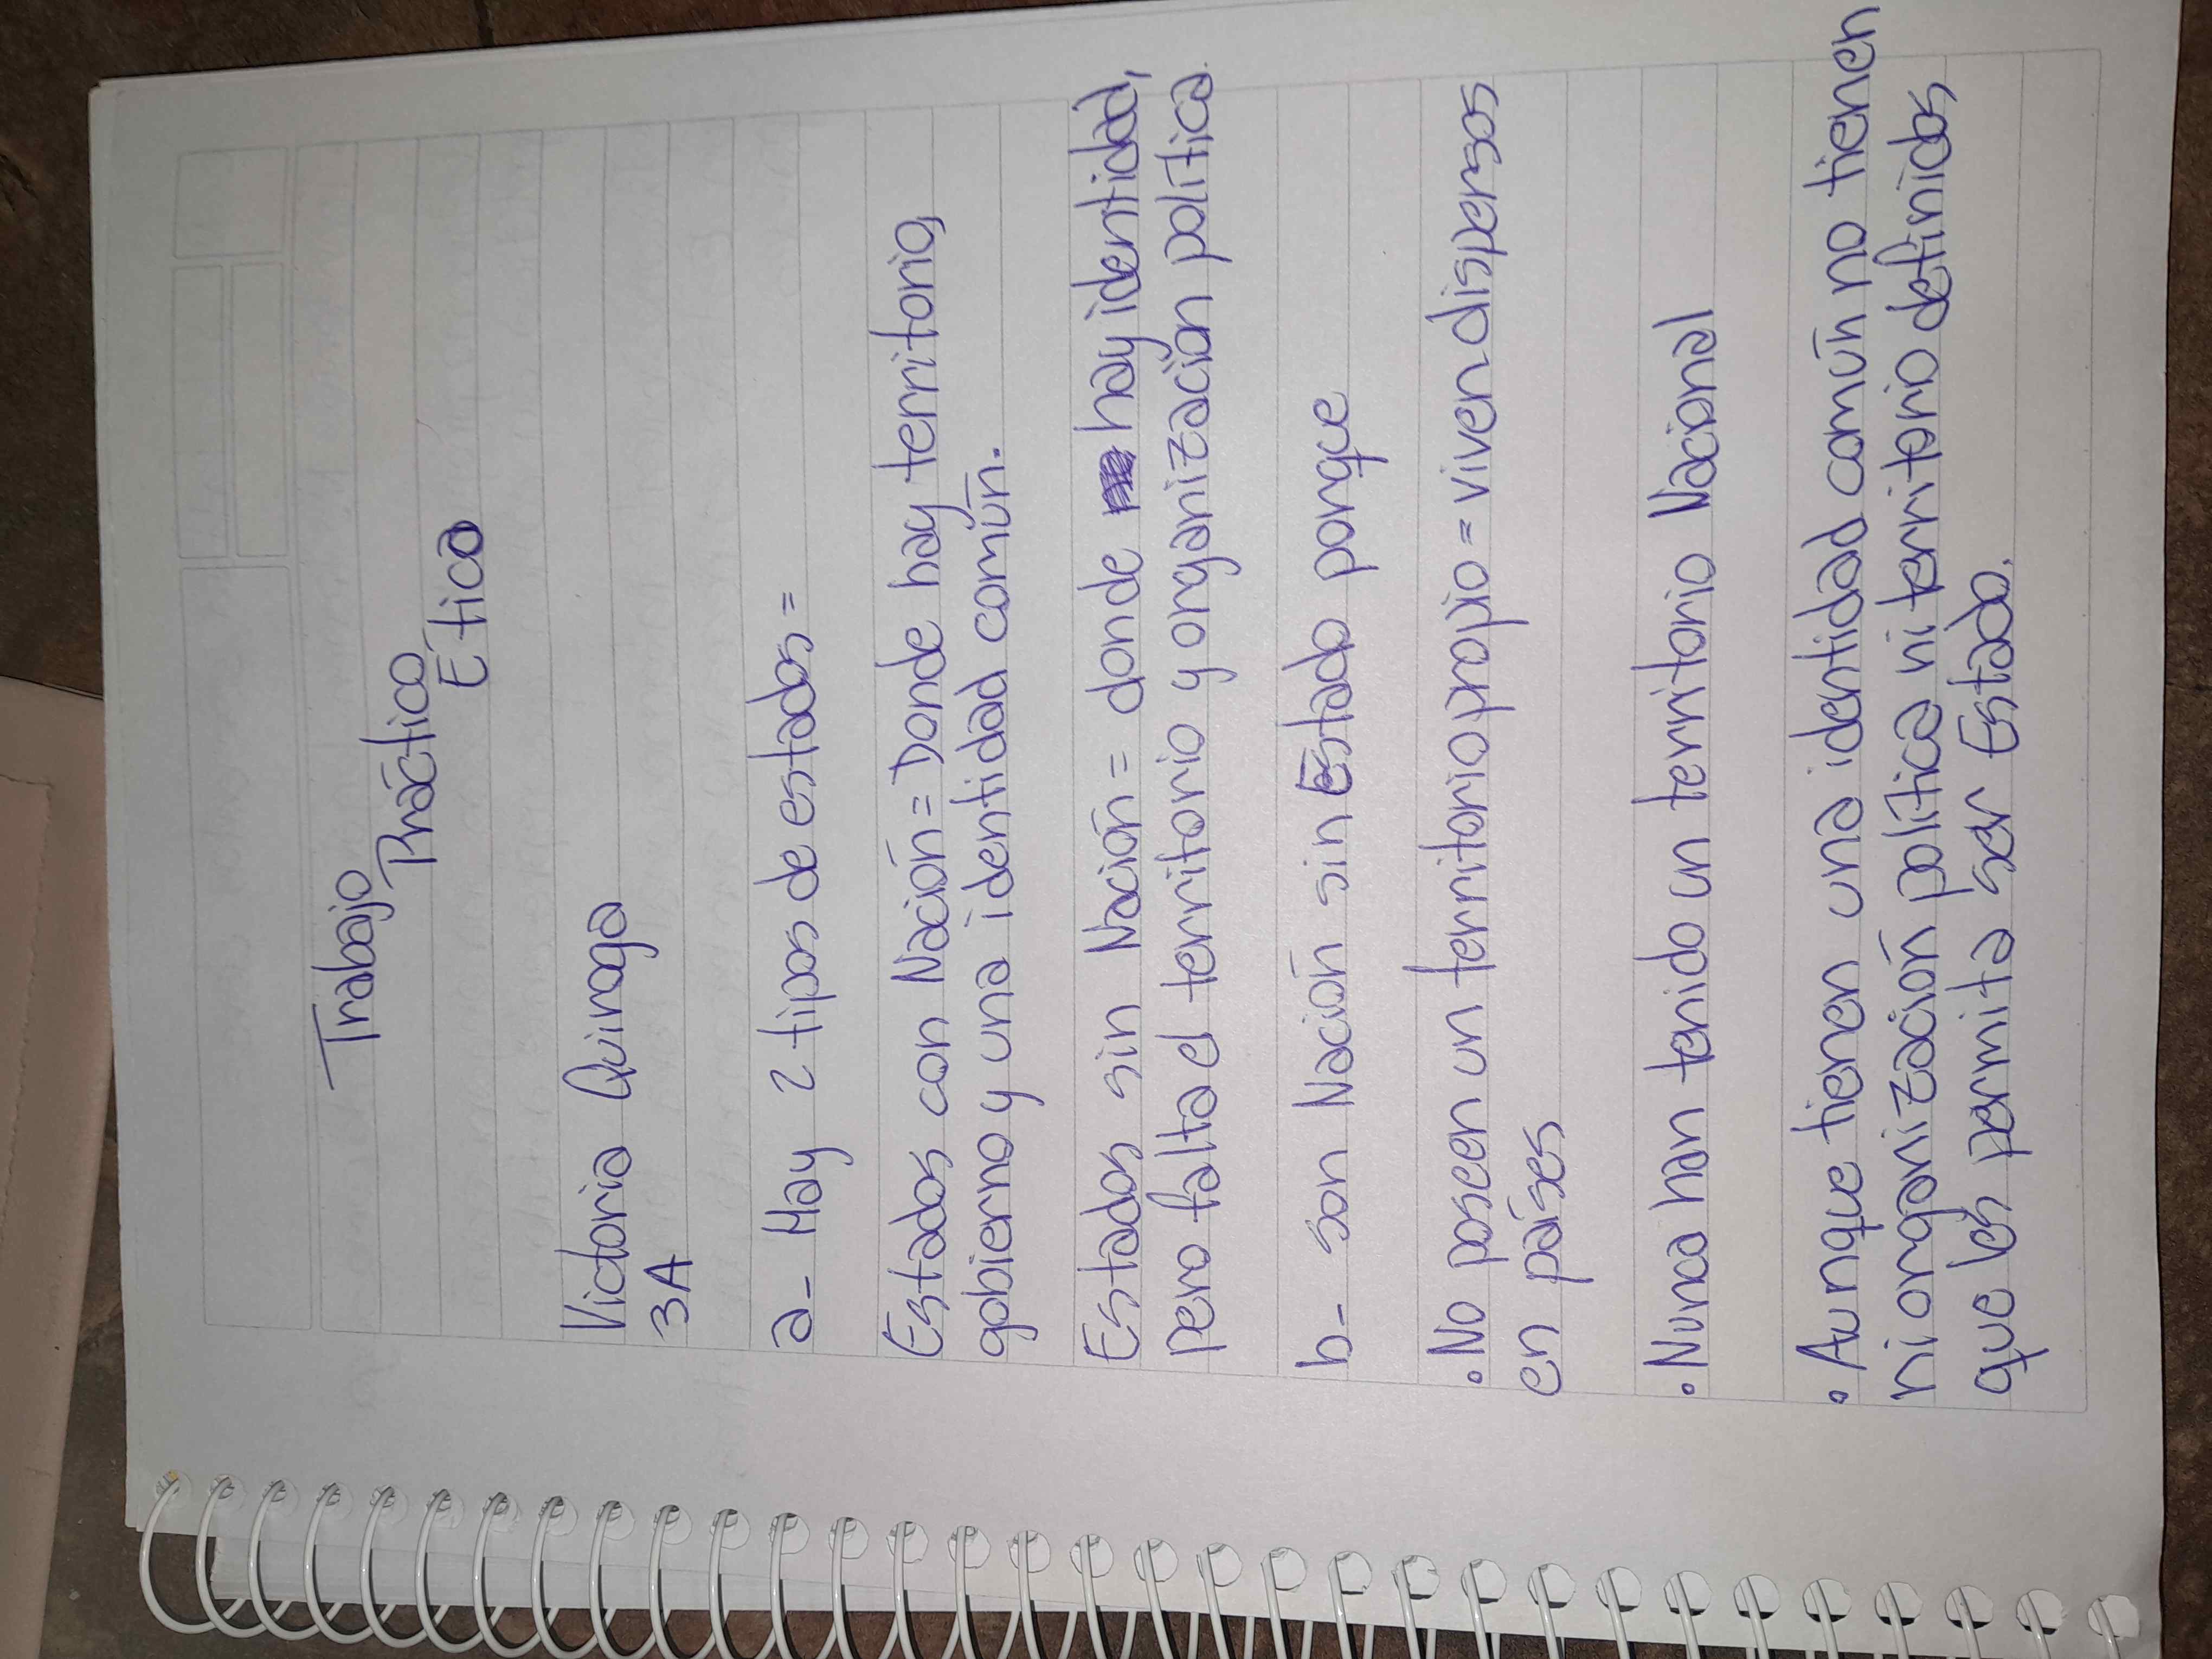 Trabajo
Práctico
Ética
Victoria Quiroga
3A
a- Hay 2 tipos de estados=
Estados con Nación= Donde hay territorio,
gobierno y una identidad común.
Estados sin Nación= donde hay identidad,
pero falta el territorio y organización política.
b- son Nación sin Estado porque
• No poseen un territorio propio = viven dispersos
en países
• Nunca han tenido un territorio Nacional
• Aunque tienen una identidad común no tienen
ni organización política ni territorio definidos
que les permita ser Estado.